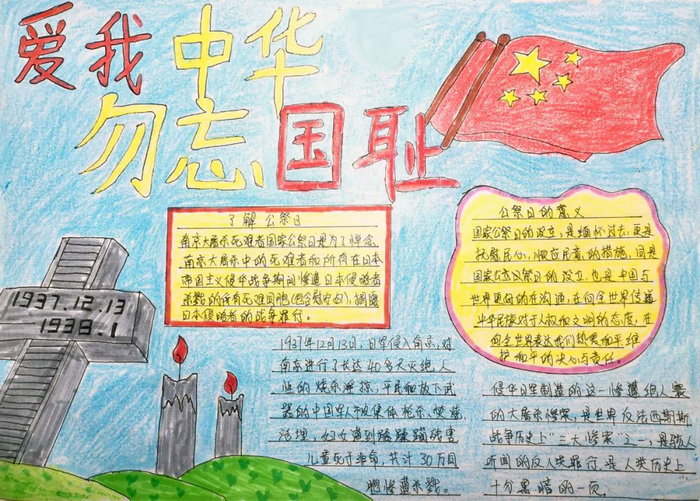 爱我中华
勿忘国耻
1937.12.13
1938.1
了解公祭日
南京大屠杀死难者国家公祭日是为了悼念
南京大屠杀中的死难者和所有在日本
帝国主义侵华战争期间惨遭日本侵略者
杀戮的所有死难同胞
日本侵略者的战争罪行。
公祭日的意义
国家公祭日的设立,是缅怀过去,更是
托慰民心、顺应民意的措施,同是
国家公祭日的设立,也是中国与
世界更好的在沟通,在向全世界传递
中华民族对于人权和文明的态度,在
向全世界表达我们热爱和平维
护和平的决心与责任。
1937年12月13日,日军侵入南京,对
南京进行了长达40多天灭绝人
性的烧杀淫掠,平民和放下武
器的中国军人被集体杀、焚烧
活埋,妇女遭到蹂躏残害,
儿童死于非命,共计30万同
胞惨遭杀戮。
侵华日军制造的这一惨遭绝人寰
的大屠杀惨案,是世界反法西斯斯
战争历史上"三大惨案"之一,是骇人
听闻的反人类罪行,是人类历史上
十分黑暗的一页.